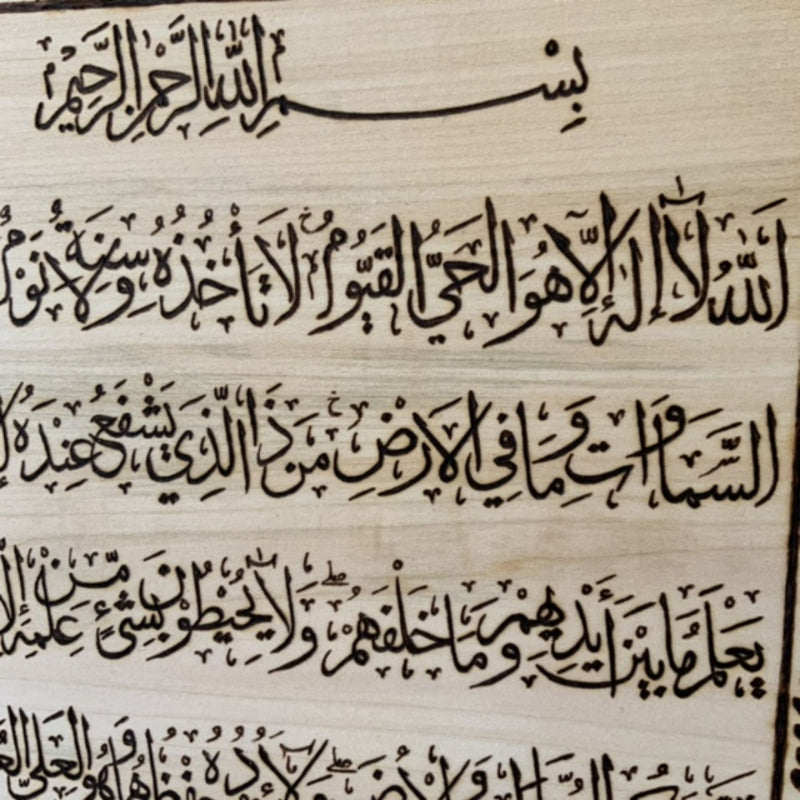 بِسْمِ اللهِ الرَّحْمٰنِ الرَّحِيْمِ
اَللّٰهُ لَآ اِلٰهَ اِلَّا هُوَ الْحَيُّ الْقَيُّوْمُ لَا تَأْخُذُهٗ سِنَةٌ وَّلَا نَوْمٌ
السَّمَاوَاتِ وَمَا فِي الْاَرْضِ مَنْ ذَا الَّذِيْ يَشْفَعُ عِنْدَهٗ
يَعْلَمُ مَا بَيْنَ أَيْدِيْهِمْ وَمَا خَلْفَهُمْ وَلَا يُحِيْطُوْنَ بِشَيْءٍ مِّنْ عِلْمِهٖ
حِفْظُهُمَا وَهُوَ الْعَلِيُّ